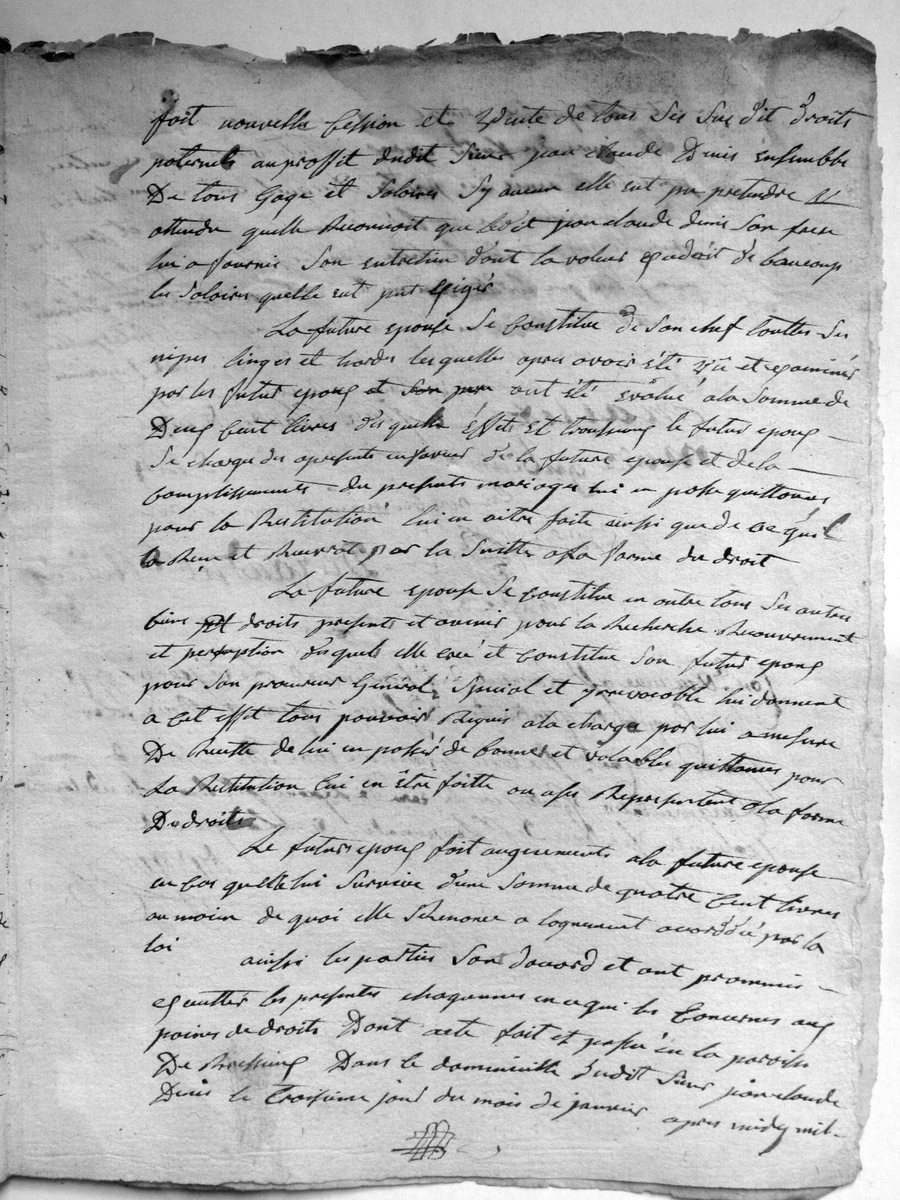 fait nouvelle Cession et Vente de tous ses susdit droits
paternels au proffit dudit sieur jean claude Denis ensembbe
De tous Gage et Saloires sy aucun elle eut pu pretendre
attendu quelle Reconnoit que ledit jean claude denis son frere
lui a fournis son entretien d'ont la valeur exedoit de beaucoup
les Saloires quelle eut put Exiger
La future epouse se Constitue de son chef touttes ses
nipes linges et hardes lesquelles apres avoir été vû et examinés
par les futur epoux et son pere ont été évalué ala Somme de
Deux Cent livres desquelle éffets et trousseaux le futur epoux
se charge des apresents en faveur de la future epouse et de la
Complissements du presents mariages lui en passe quittances
pour la Restitution lui en aitre faite ainsi que de ce quil
a Reçu et Recevrat par la Suitte a la forme du droit
La future epouse se Constitue en outre tous ses autres
biens droits presents et avenir pour la Recherche Recouvrement
et perception desquels elle créé et Constitue son futur epoux
pour son procureur Général, Spécial et yrevocable lui donnent
a cet effet tous pouvoir Requis ala charge par lui a mesure
De Recette de lui en passér de bonnes et valables quittances pour
La Restitution lui en être faitte ou a ses a la forme
De droits
Le futurs epoux fait augements ala future epouse
en Cas quelle lui survive d'une Somme de quatre Cent livres
au moien de quoi elle Renonce a logement accorddéé par la
loi
ainssi les parties son daccord et ont prommis
exeutter les presentes chaqunnes en ce qui les Concernes aux
paines de droits Dont acte fait et passé en la paroisse
De Dans le dommicille dudit Sieur jean claude
Denis le Troisieme jour du mois de janvier apres midy mil-